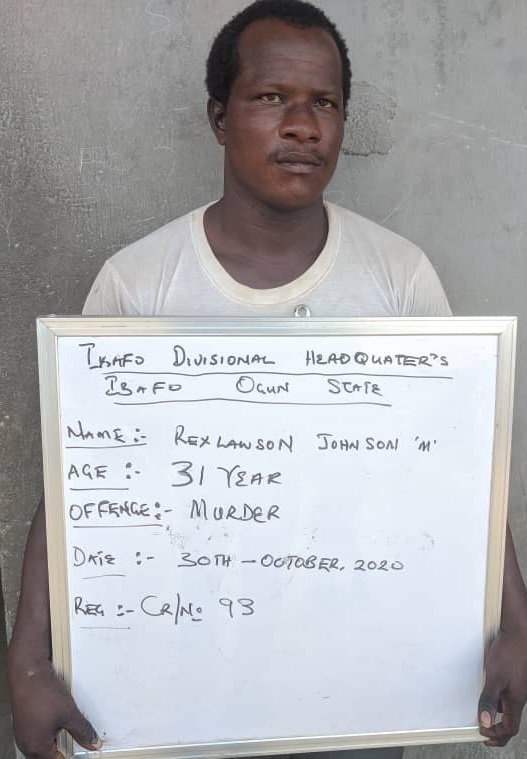 IBAFO DIVISIONAL HEADQUATER'S
IBAFO OGUN STATE
NAME :- REXLAWSON JOHNSON 'M'
AGE :- 31 YEAR
OFFENCE :- MURDER
DATE :- 30TH - OCTOBER, 2020
REG :- CR/No 93